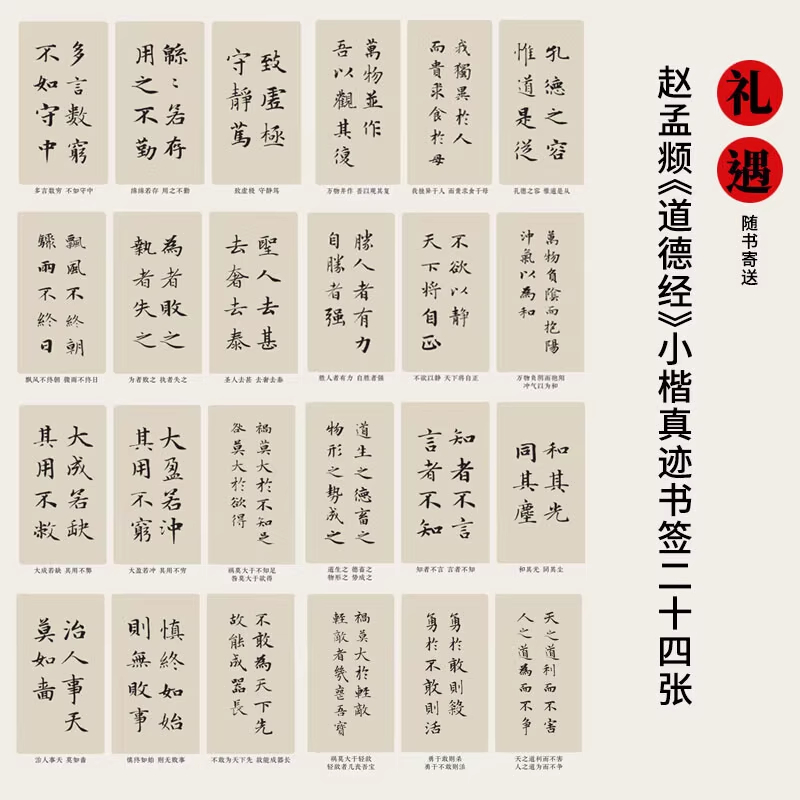 礼遇
随书寄送
赵孟𫖯《道德经》小楷真迹书签二十四张
多言數窮
不如守中
多言数穷 不如守中
緜〻若存
用之不勤
绵绵若存 用之不勤
致虛極
守靜篤
致虚极 守静笃
萬物並作
吾以觀其復
万物并作 吾以观其复
我獨異於人
而貴求食於母
我独异于人 而贵求食于母
孔德之容
惟道是從
孔德之容 惟道是从
飄風不終朝
驟雨不終日
飘风不终朝 骤雨不终日
為者敗之
執者失之
为者败之 执者失之
聖人去甚
去奢去泰
圣人去甚 去奢去泰
勝人者有力
自勝者强
胜人者有力 自胜者强
不欲以靜
天下將自正
不欲以静 天下将自正
萬物負陰而抱陽
沖氣以為和
万物负阴而抱阳
冲气以为和
大成若缺
其用不敝
大成若缺 其用不弊
大盈若沖
其用不窮
大盈若冲 其用不穷
禍莫大於不知足
咎莫大於欲得
祸莫大于不知足
咎莫大于欲得
道生之德畜之
物形之勢成之
道生之 德畜之
物形之 势成之
知者不言
言者不知
知者不言 言者不知
和其光
同其塵
和其光 同其尘
治人事天
莫如嗇
治人事天 莫如啬
慎終如始
則無敗事
慎终如始 则无败事
不敢為天下先
故能成器長
不敢为天下先 故能成器长
禍莫大於輕敵
輕敵者幾喪吾寶
祸莫大于轻敌
轻敌者几丧吾宝
勇於敢則殺
勇於不敢則活
勇于敢则杀
勇于不敢则活
天之道利而不害
人之道為而不争
天之道利而不害
人之道为而不争